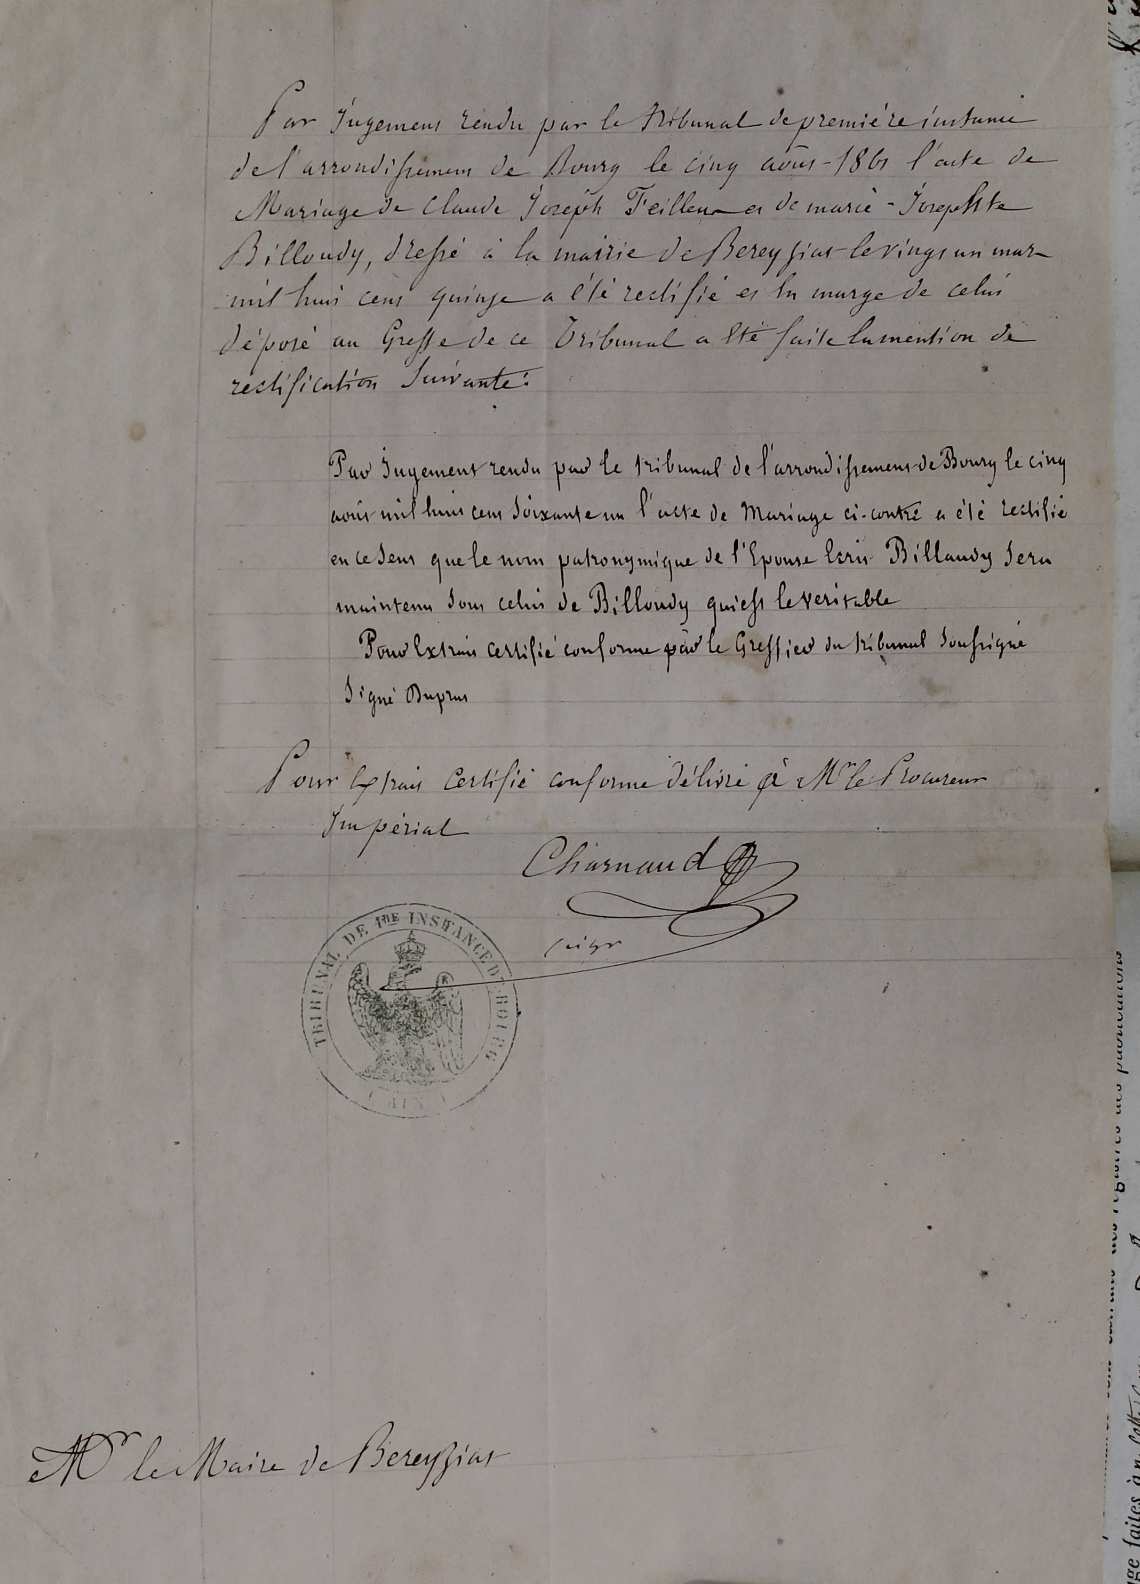 Par Jugement rendu par le tribunal de première instance
de l'arrondissement de Bourg le cinq août - 1861 l'acte de
Mariage de Claude Joseph Feilleur et de marie - Josephte
Billoudy, dressé à la mairie de Bereyziat le vingt un mars
mil huit cent quinze a été rectifié et en marge de celui
déposé au Greffe de ce Tribunal a été faite la mention de
rectification Suivante :
Par Jugement rendu par le tribunal de l'arrondissement de Bourg le cinq
août mil huit cent soixante un l'acte de Mariage ci-contre a été rectifié
en ce sens que le nom patronymique de l'Epouse Ecrit Billaudy sera
maintenu sous celui de Billoudy qui est le veritable
Pour Extrait certifié conforme par le Greffier du tribunal soussigné
Signé Duprus
Pour Extrait Certifié conforme délivré à Mr le Procureur
Impérial
Charnaud
TRIBUNAL DE 1RE INSTANCE DE BOURG
(AIN)
Mr le Maire de Bereyziat